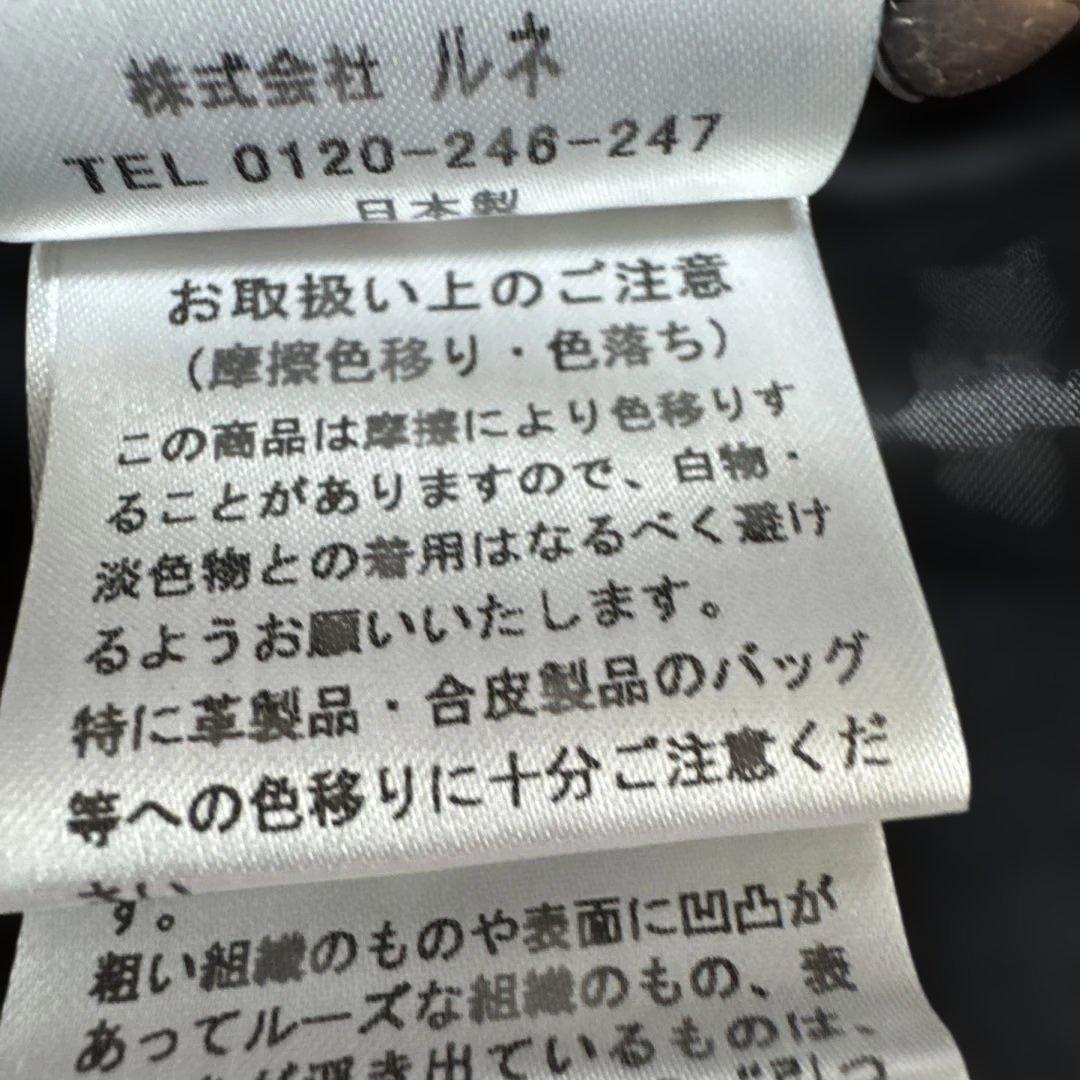 株式会社 ルネ
TEL 0120-246-247
日本製
お取扱い上のご注意
（摩擦色移り・色落ち）
この商品は摩擦により色移りす
ることがありますので、白物・
淡色物との着用はなるべく避け
るようお願いいたします。
特に革製品・合皮製品のバッグ
等への色移りに十分ご注意くだ
さい
す。
粗い組織のものや表面に凹凸が
あってルーズな組織のもの、表
が浮き出ているものは、